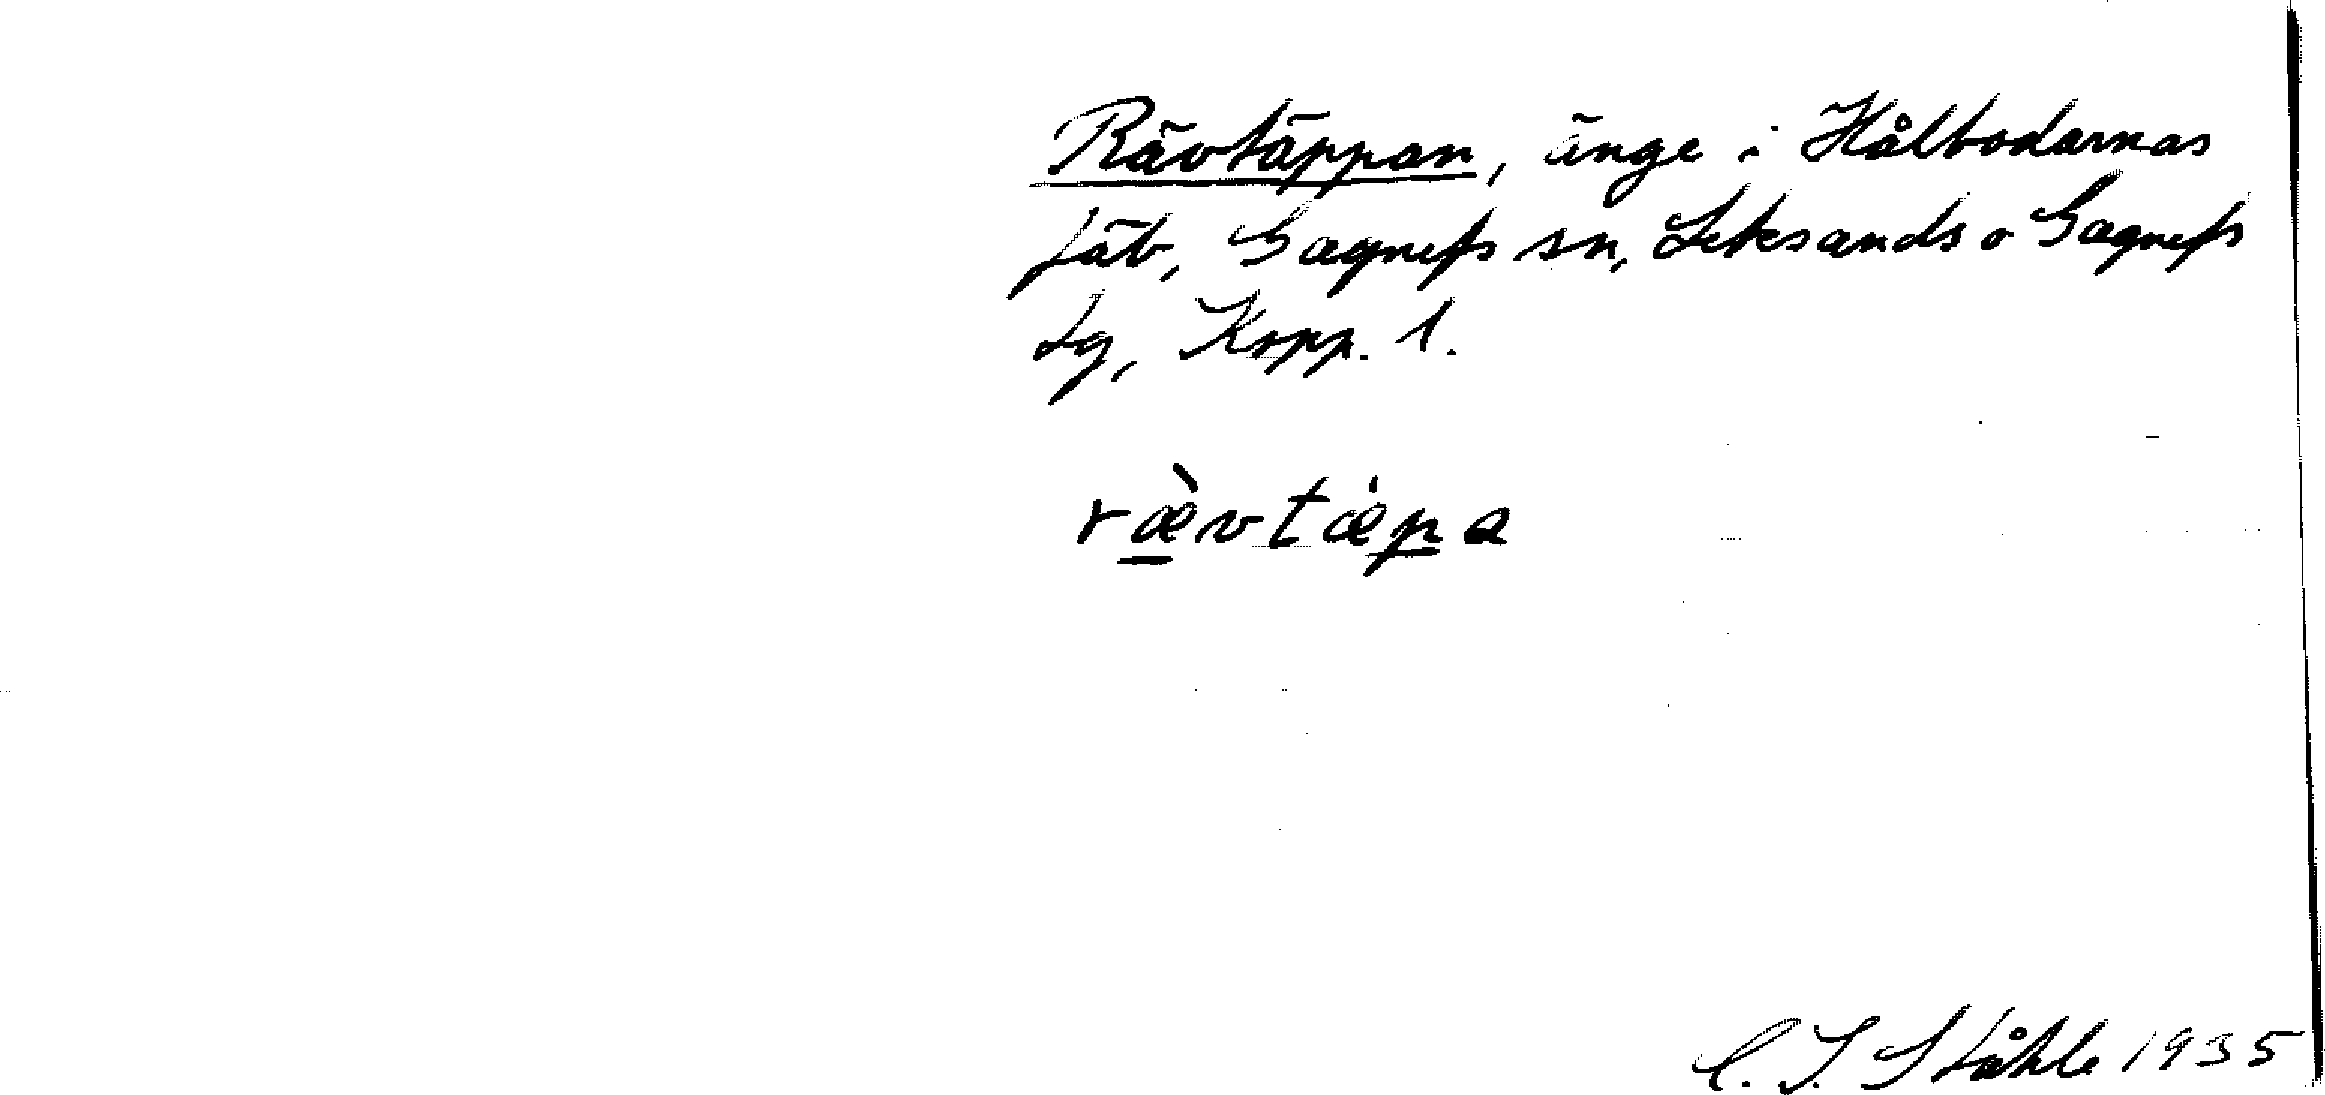 Rävtäppan, änge i Hålbodarnas
fäb, Gagnefs sn, Leksands o Gagnefs
tg, Kopp. l.
ræ̀vtæpa
C. I. Ståhle 1935